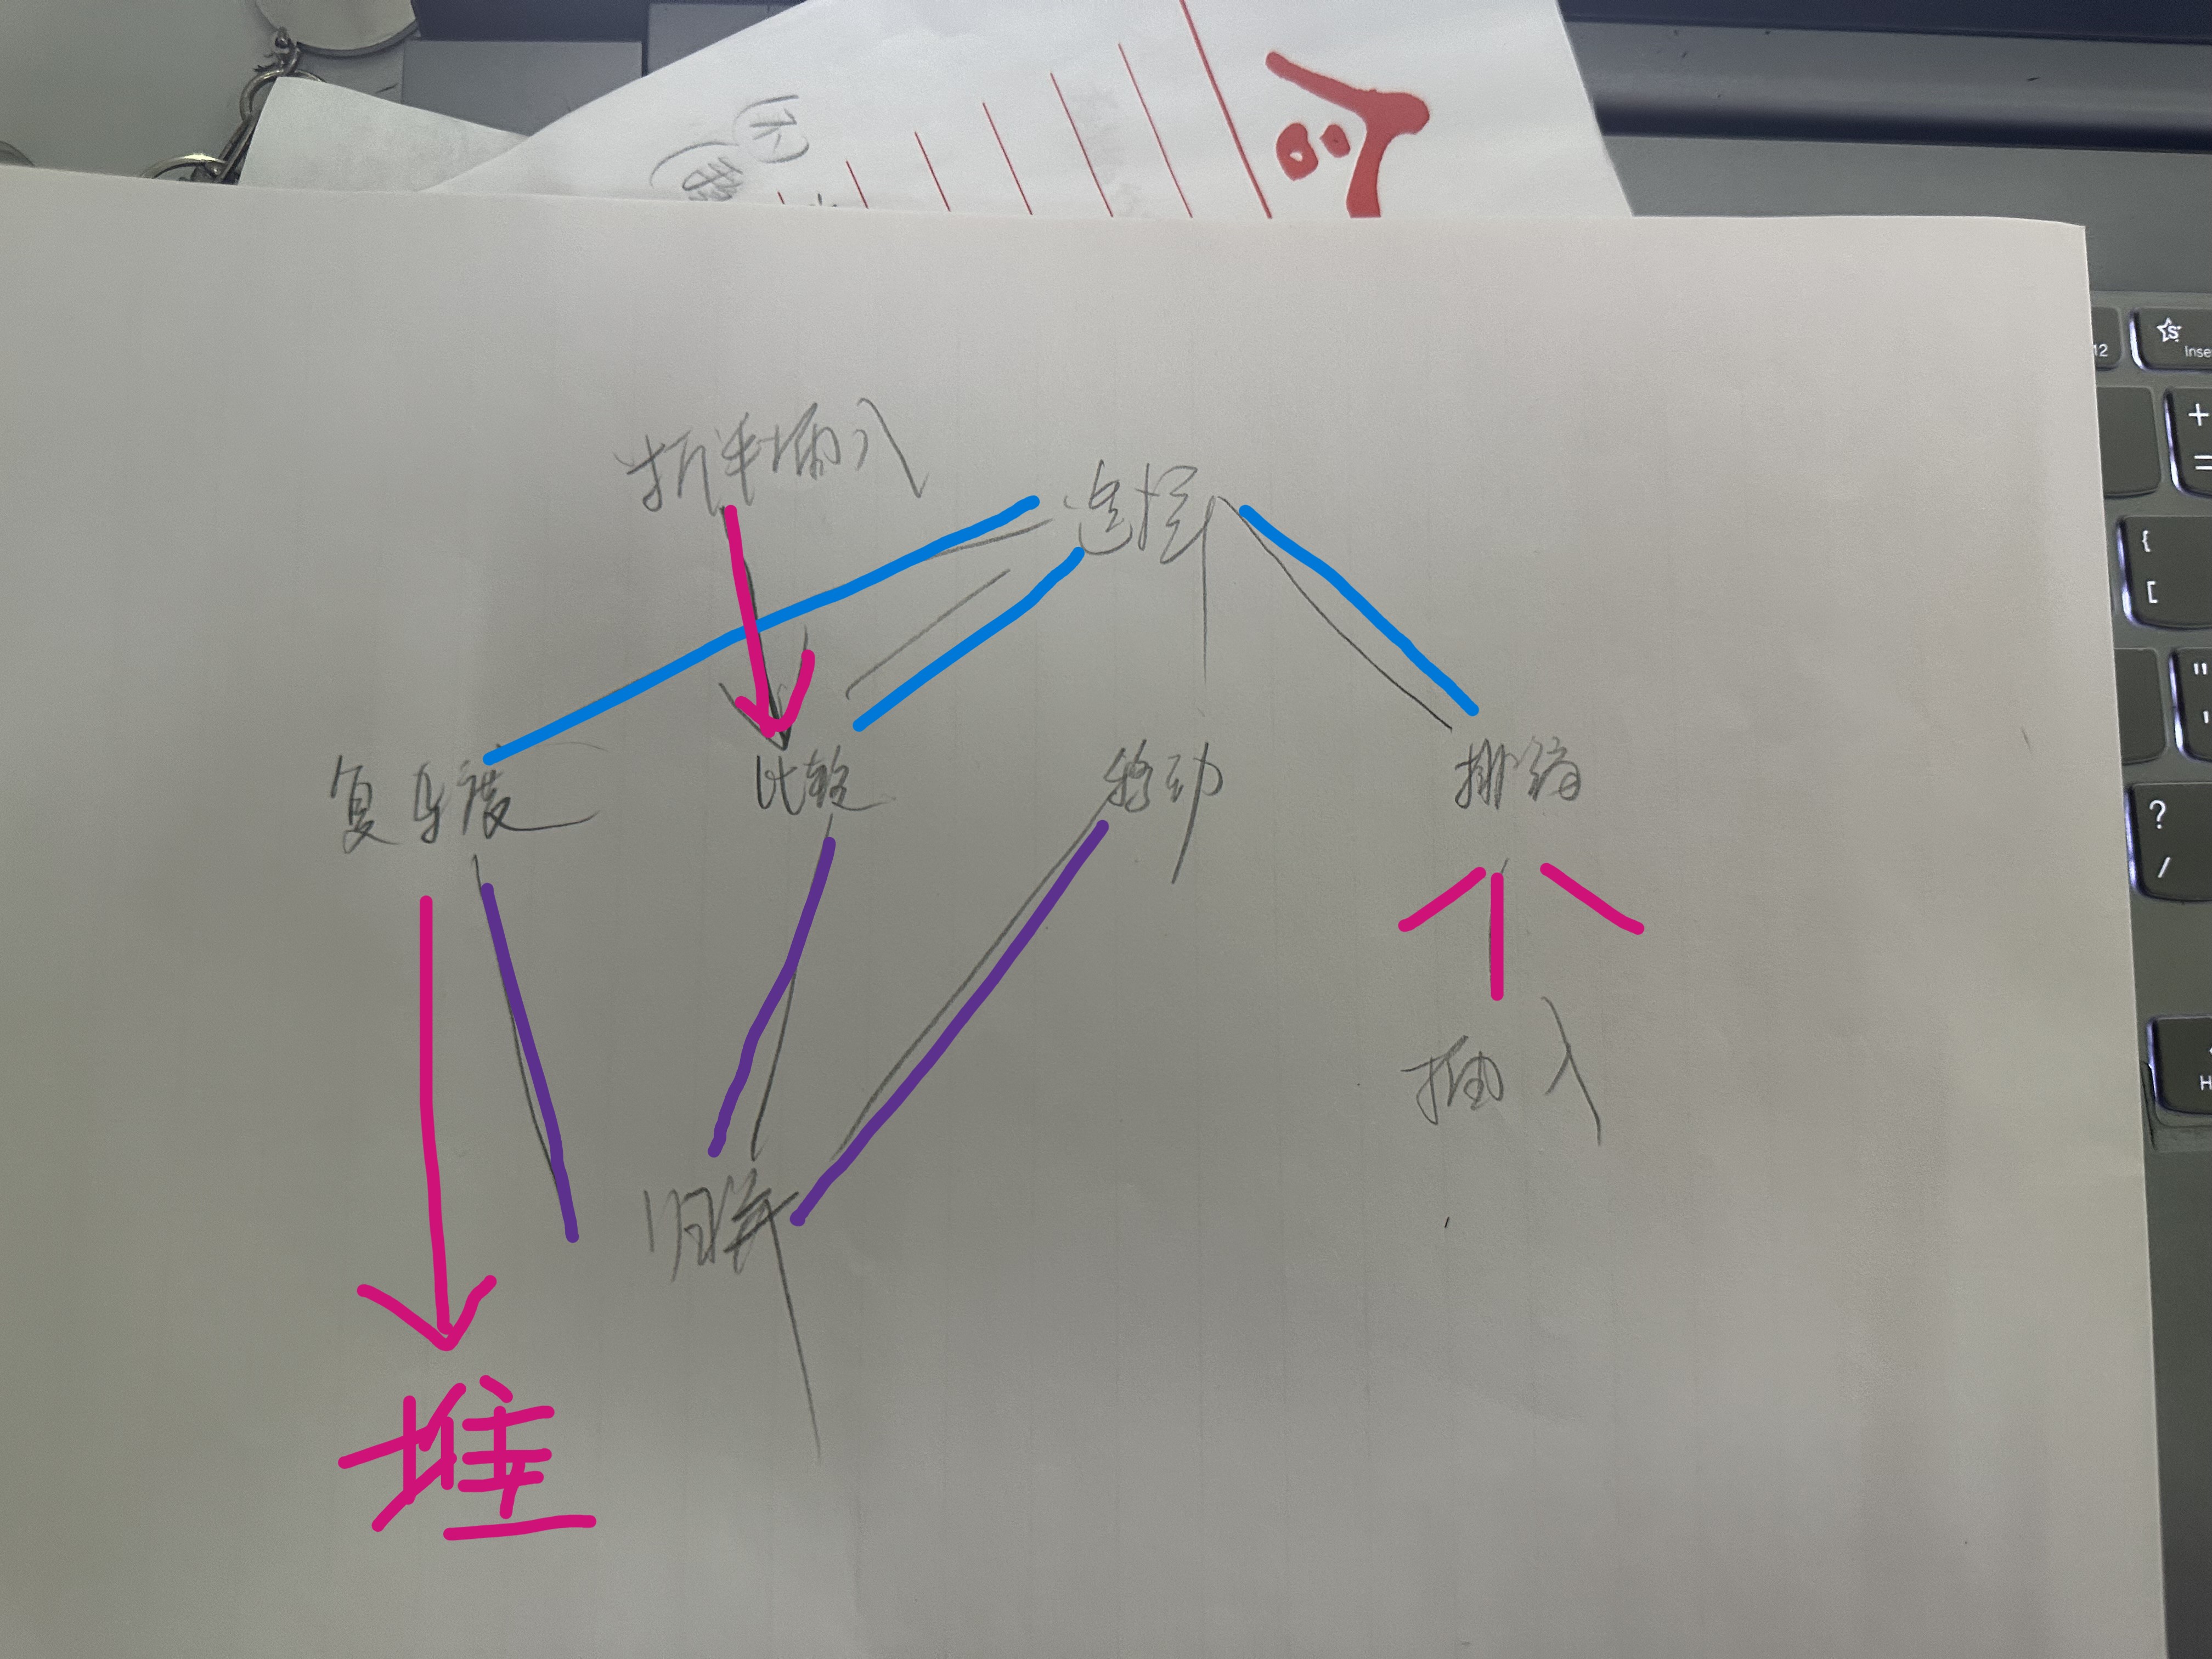 折半插入
选择
复杂度
比较
移动
排趟
插入
归并
堆
12
Inse
+
=
{
[
"
'
?
/
H